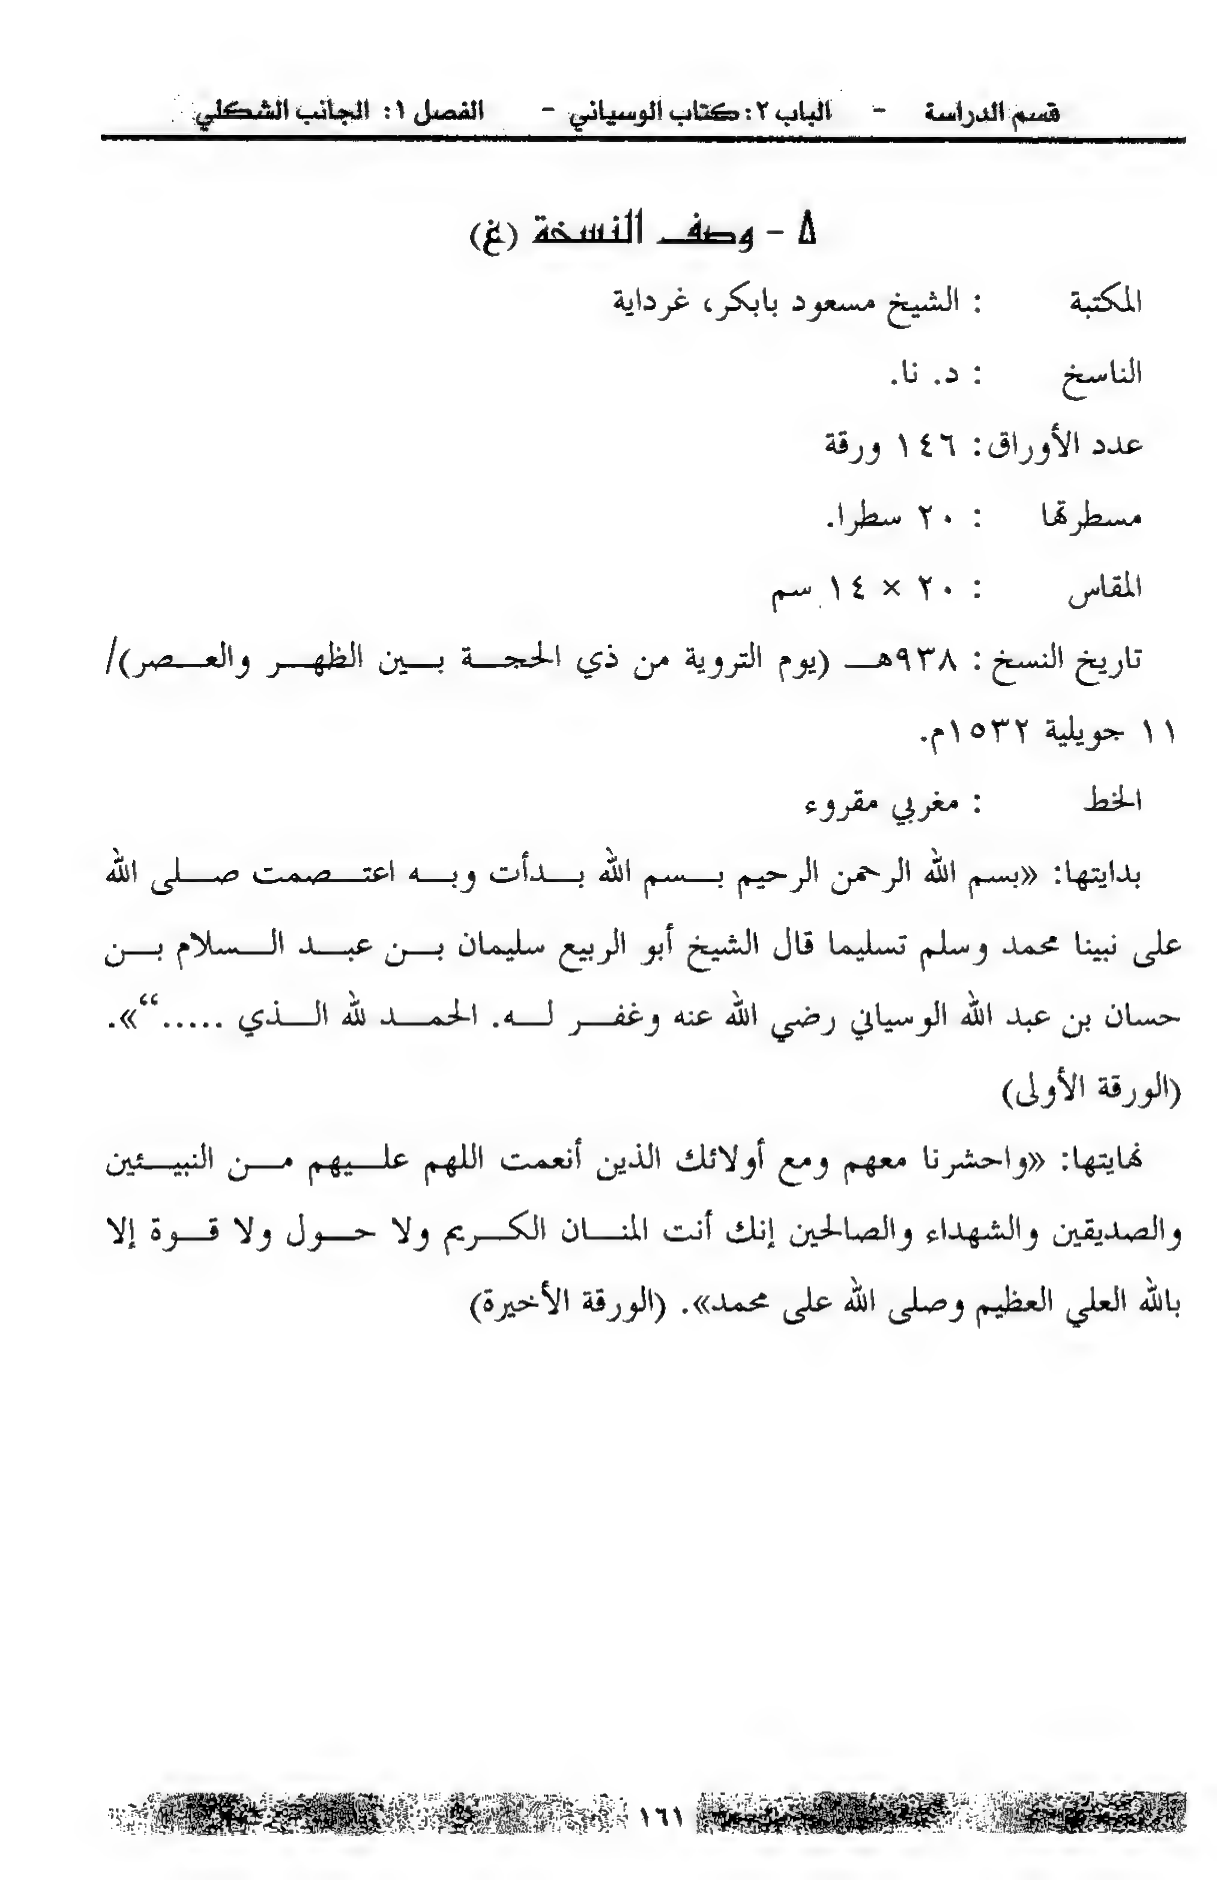 قسم الدراسة - الباب ٢: كتاب الوسياني - الفصل ١: الجانب الشكلي
٥ - وصف النسخة (غ)
المكتبة : الشيخ مسعود بابكر، غرداية
الناسخ : د. نا.
عدد الأوراق: ١٤٦ ورقة
مسطرتها : ٢٠ سطرا.
المقاس : ٢٠ × ١٤ سم
تاريخ النسخ : ٩٣٨هـ (يوم التروية من ذي الحجة بين الظهر والعصر)/
١١ جويلية ١٥٣٢م.
الخط : مغربي مقروء
بدايتها: «بسم الله الرحمن الرحيم بسم الله بدأت وبه اعتصمت صلى الله
على نبينا محمد وسلم تسليما قال الشيخ أبو الربيع سليمان بن عبد السلام بن
حسان بن عبد الله الوسياني رضي الله عنه وغفر له. الحمد لله الذي .....“».
(الورقة الأولى)
نهايتها: «واحشرنا معهم ومع أولائك الذين أنعمت اللهم عليهم من النبيئين
والصديقين والشهداء والصالحين إنك أنت المنان الكريم ولا حول ولا قوة إلا
بالله العلي العظيم وصلى الله على محمد». (الورقة الأخيرة)
١٦١